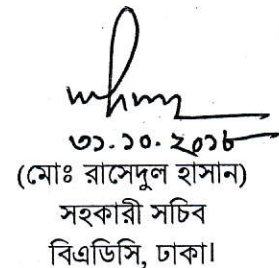 ৩১.১০.২০১৮
(মোঃ রাসেদুল হাসান)
সহকারী সচিব
বিএডিসি, ঢাকা।